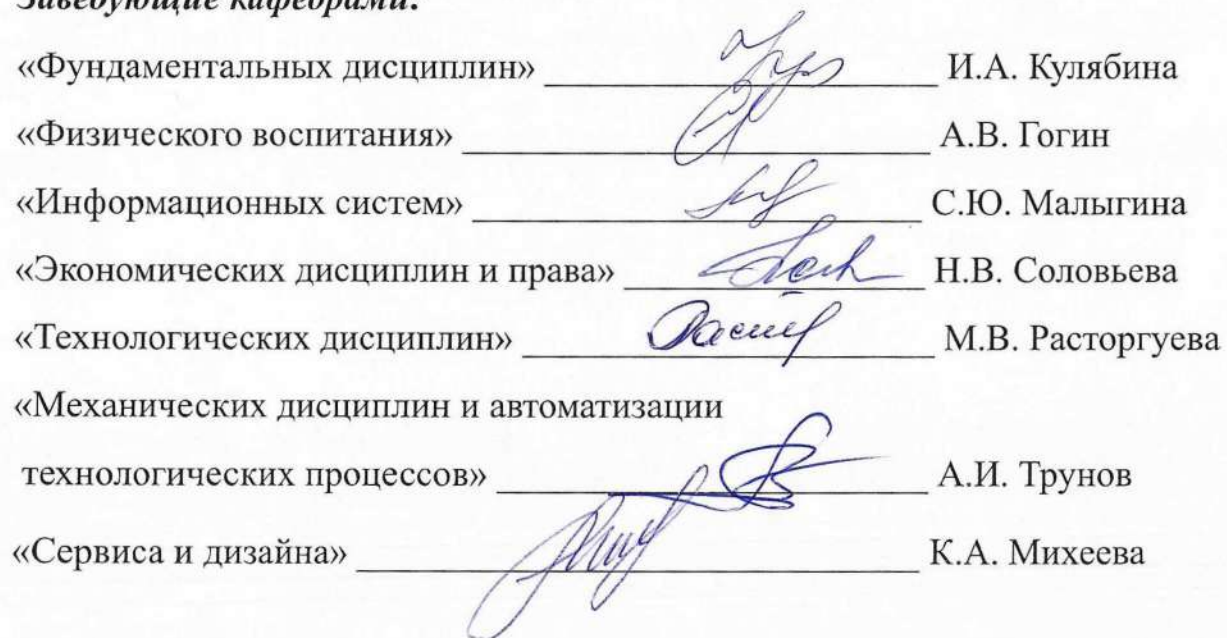 Заведующие кафедрами:
«Фундаментальных дисциплин» И.А. Кулябина
«Физического воспитания» А.В. Гогин
«Информационных систем» С.Ю. Малыгина
«Экономических дисциплин и права» Н.В. Соловьева
«Технологических дисциплин» М.В. Расторгуева
«Механических дисциплин и автоматизации
технологических процессов» А.И. Трунов
«Сервиса и дизайна» К.А. Михеева